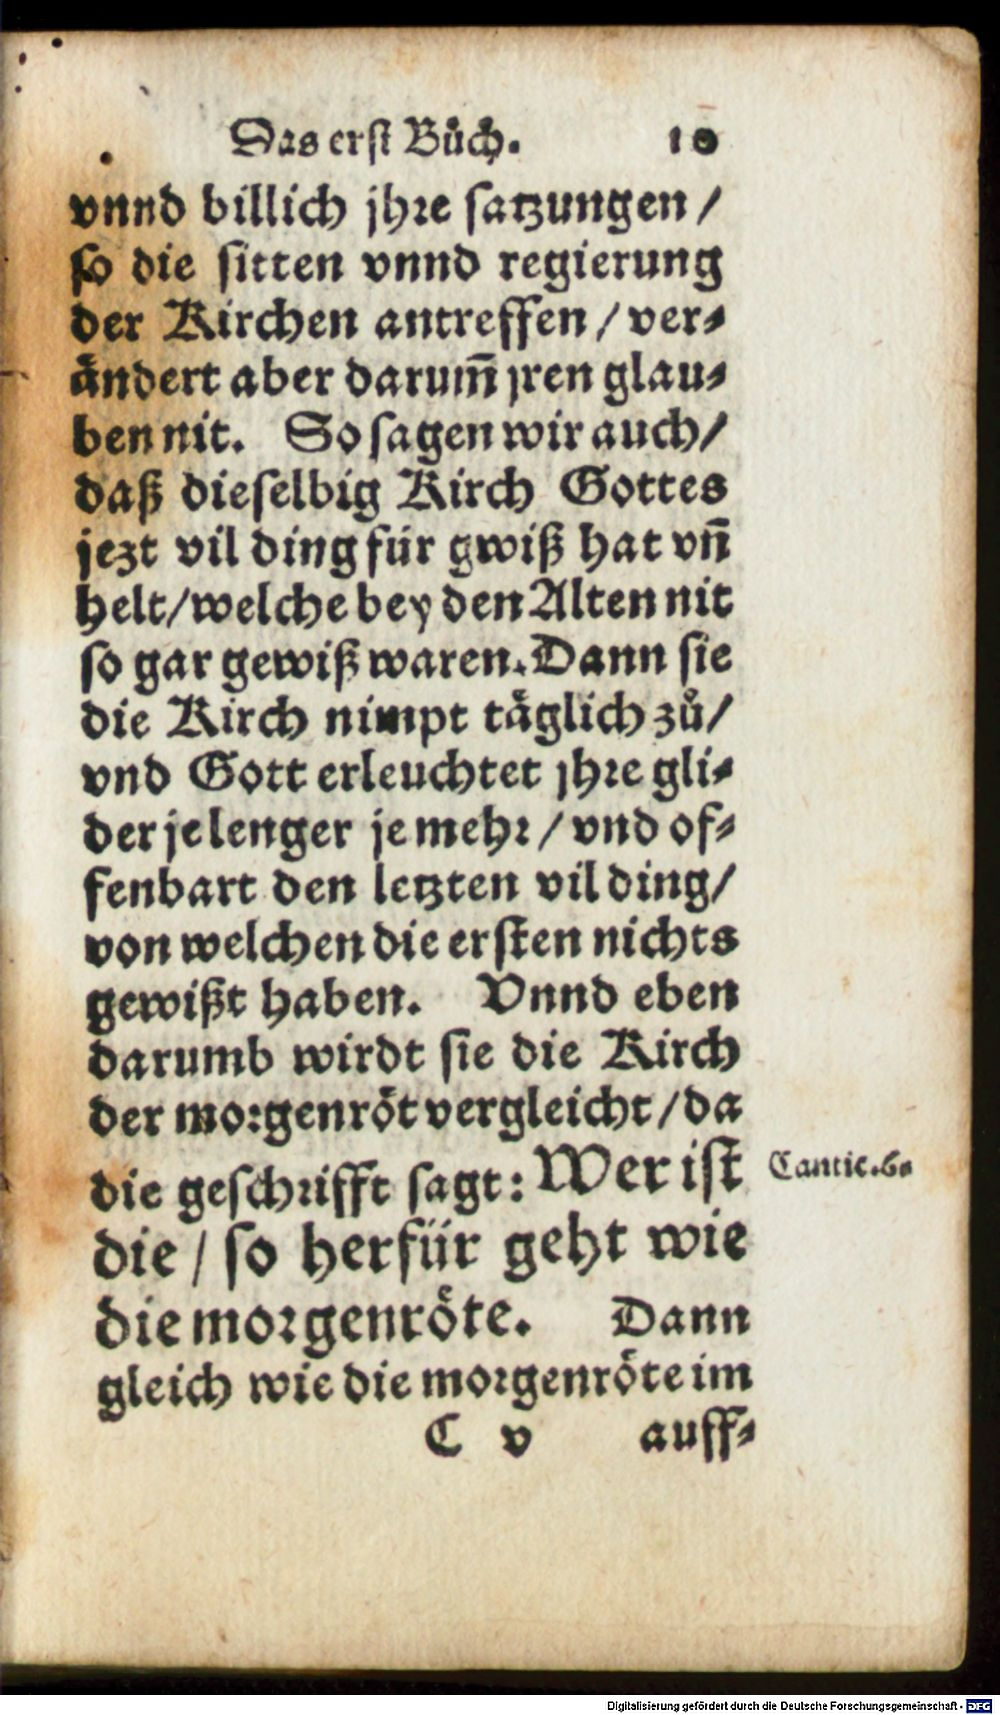 Das erst Bůch. 10
vnnd billich jhꝛe satzungen /
so die sitten vnnd regierung
der Kirchen antreffen / ver⸗
åndert aber darum̃ jren glau⸗
ben nit. So sagen wir auch /
daß dieselbig Kirch Gottes
jezt vil ding für gwiß hat vñ
helt / welche bey den Alten nit
so gar gewiß waren. Dann sie
die Kirch nimpt tåglich zů /
vnd Gott erleuchtet jhꝛe gli⸗
der je lenger je mehꝛ / vnd of⸗
fenbart den letzten vil ding /
von welchen die ersten nichts
gewißt haben. Vnnd eben
darumb wirdt sie die Kirch
der moꝛgenröt vergleicht / da
die geschꝛifft sagt: Wer ist
Cantic. 6.
die / so herfür geht wie
die moꝛgenröte. Dann
gleich wie die moꝛgenröte im
C v auff⸗
Digitalisierung gefördert durch die Deutsche Forschungsgemeinschaft - DFG